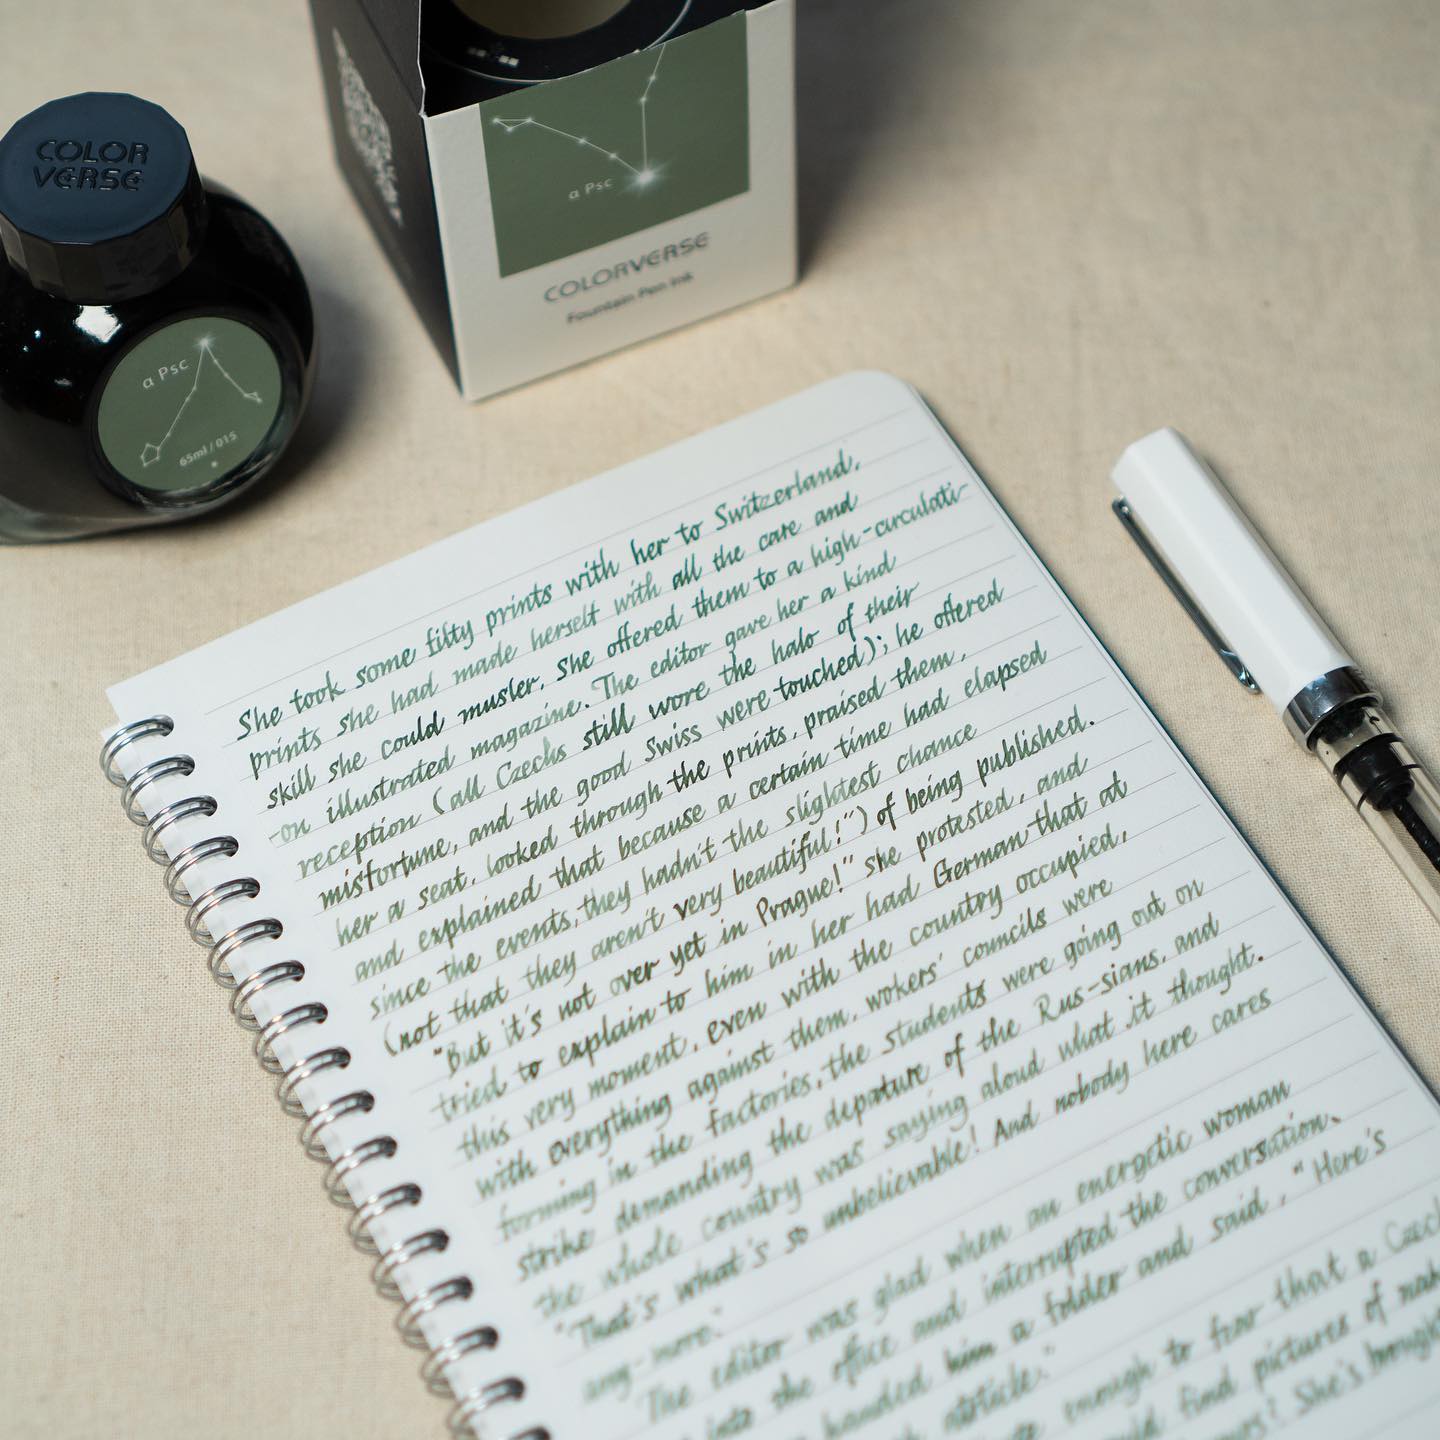 COLOR
VERSE
α Psc
65ml / 015
α Psc
COLORVERSE
Fountain Pen Ink
She took some fifty prints with her to Switzerland,
prints she had made herself with all the care and
skill she could muster. She offered them to a high-circulati-
-on illustrated magazine. The editor gave her a kind
reception (all Czechs still wore the halo of their
misfortune, and the good Swiss were touched); he offered
her a seat, looked through the prints, praised them,
and explained that because a certain time had elapsed
since the events, they hadn't the slightest chance
(not that they aren't very beautiful!") of being published.
"But it's not over yet in Prague!" she protested, and
tried to explain to him in her had German that at
this very moment, even with the country occupied,
with everything against them, wokers' councils were
forming in the factories, the students were going out on
strike demanding the depature of the Rus-sians, and
the whole country was saying aloud what it thought.
"That's what's so unbelievable! And nobody here cares
any-more."
The editor was glad when an energetic woman
into the office and interrupted the conversation.
handed him a folder and said, "Here's
article."
enough to fear that a Czech
find pictures of
She's brought